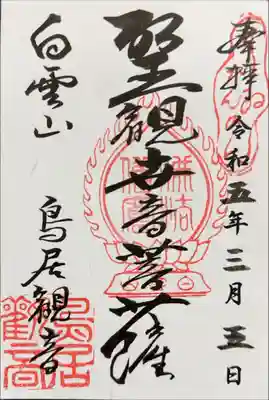 奉拝
令和五年三月五日
聖観世音菩薩
白雲山
鳥居観音
鳥居観音